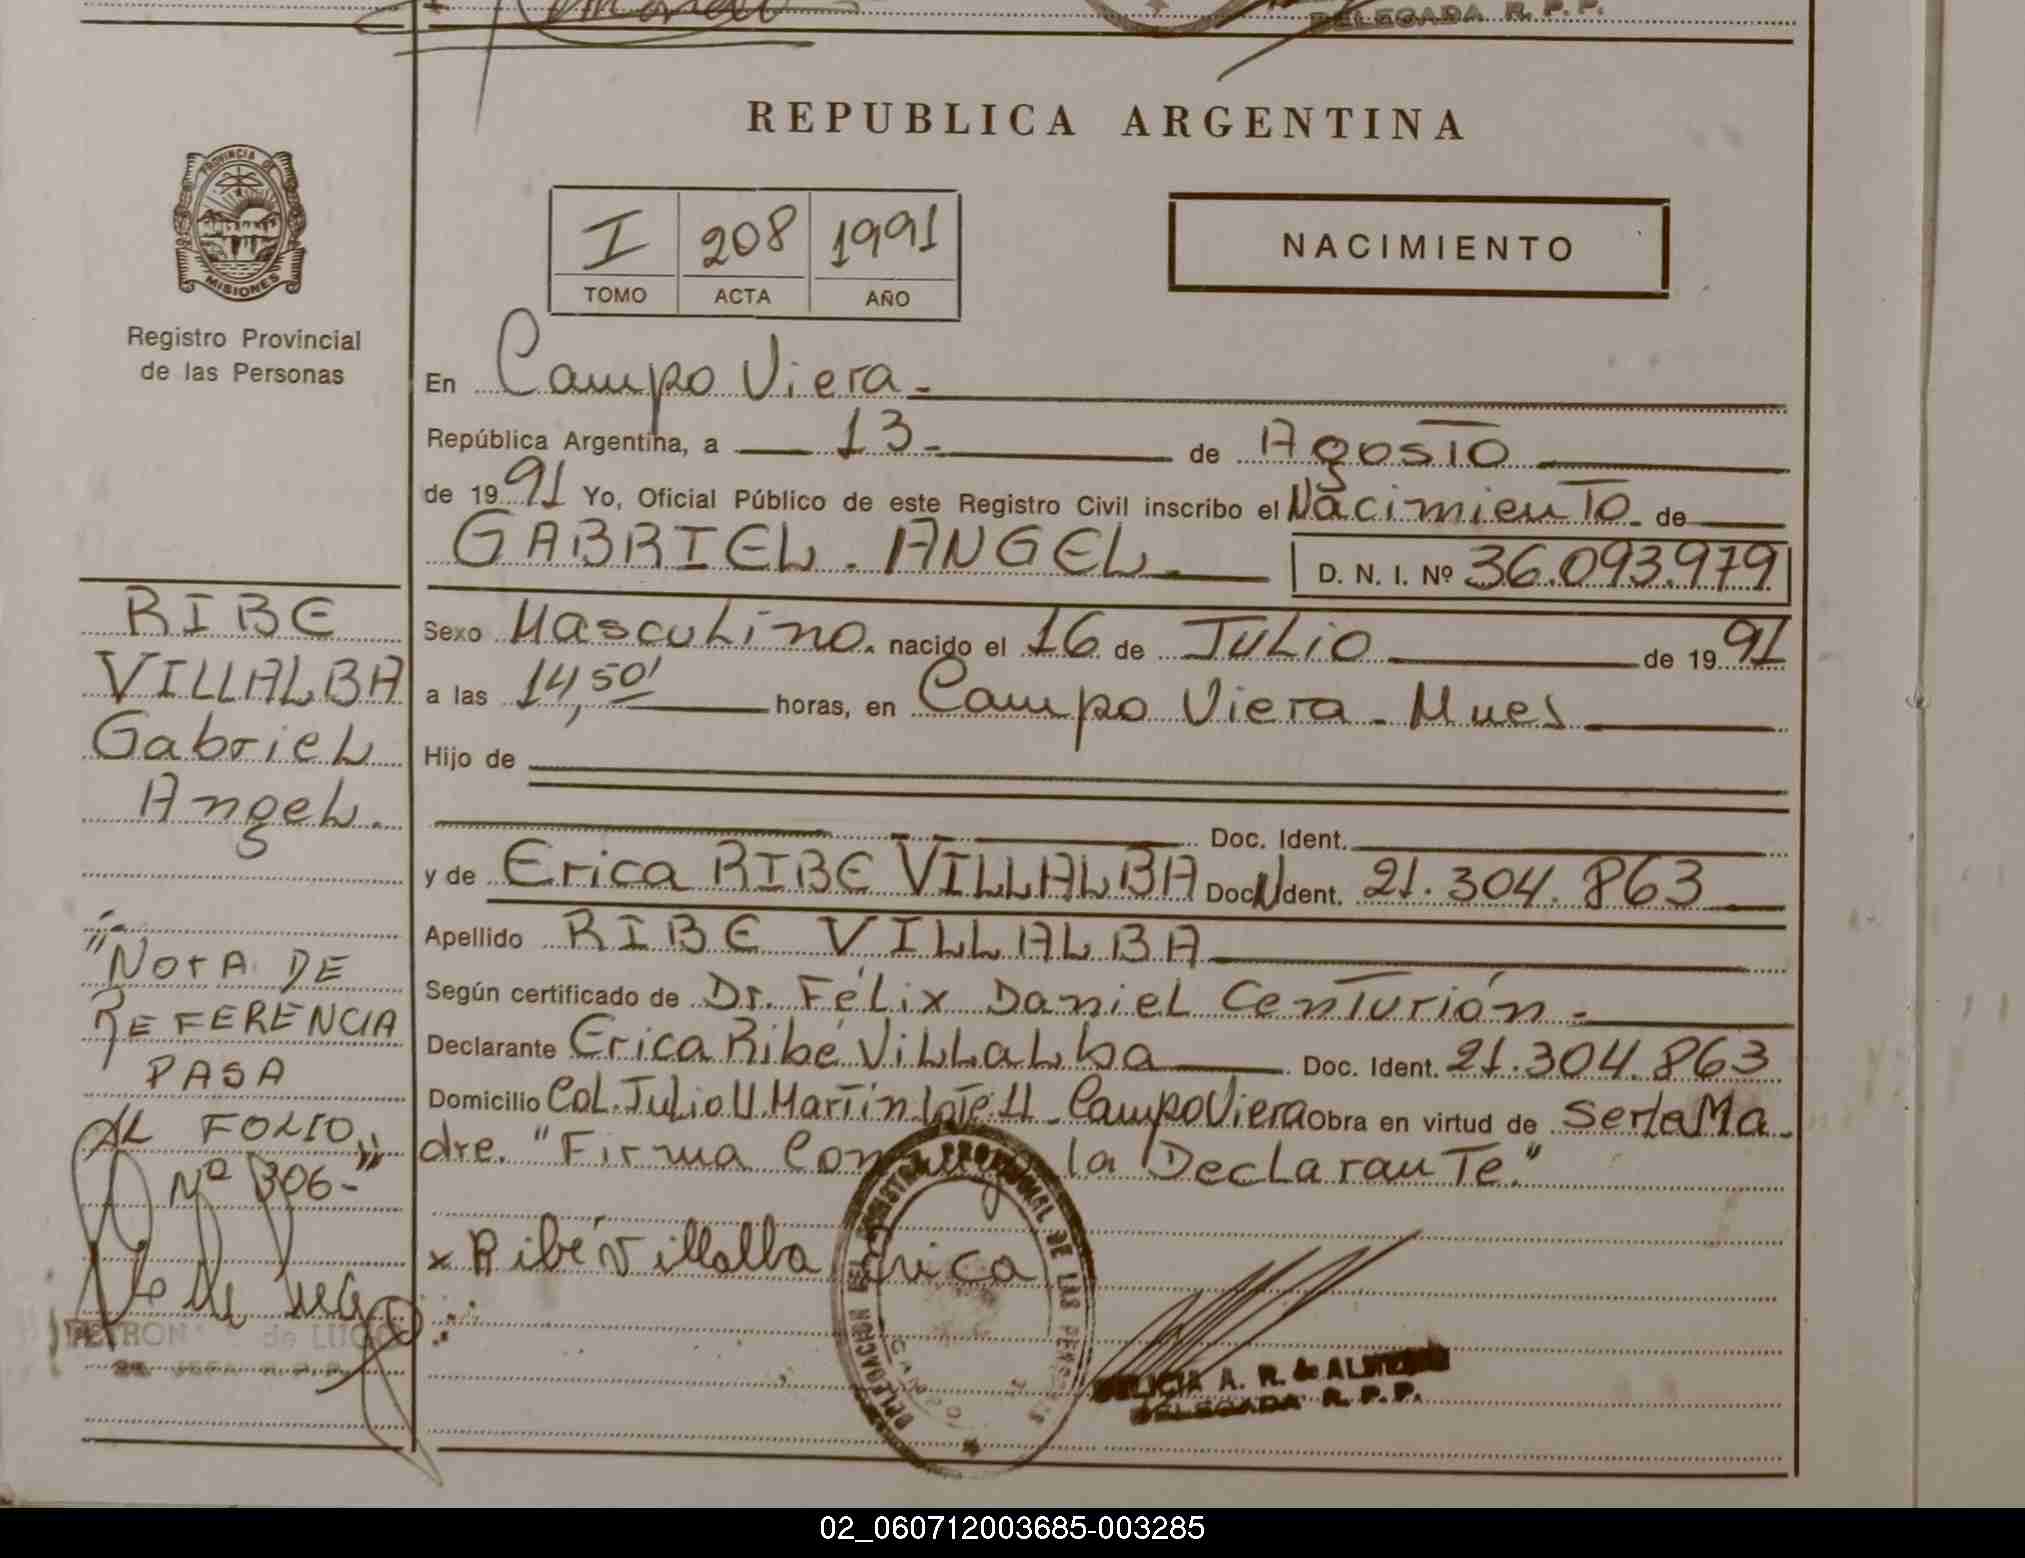 DELEGADA R. P. P.
REPUBLICA ARGENTINA
PROVINCIA DE
MISIONES
Registro Provincial
de las Personas
I 208 1991
TOMO ACTA AÑO
NACIMIENTO
En Campo Viera.
República Argentina, a 13 de Agosto
de 1991 Yo, Oficial Público de este Registro Civil inscribo el Nacimiento de
GABRIEL ANGEL D. N. I. Nº 36.093.979
Sexo Masculino. nacido el 16 de Julio de 1991
a las 14,50' horas, en Campo Viera
Hijo de
Doc. Ident.
y de Erica RIBE VILLALBA Doc. Ident. 21.304.863
Apellido RIBE VILLALBA
Según certificado de Dr. Félix Daniel Centurión
Declarante Erica Ribé Villalba Doc. Ident. 21.304.863
Domicilio Col. Julio U. Martín Lote Campo Viera Obra en virtud de Ser la Ma-
dre. "Firma la Declarante."
x Ribé Villalba Erica
DELEGACION DEL REGISTRO PROVINCIAL DE LAS PERSONAS
A. R. de
DELEGADA R. P. P.
RIBE
VILLALBA
Gabriel
Angel.
"NOTA DE
REFERENCIA
PASA
AL FOLIO
Nº 306-"
de LUGO
02_060712003685-003285